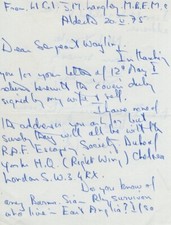 From. W.C.I. I.M. Langley, M.B.E. M.C
Alde 20 V 75
Dear Sergeant Wayling,
In thanking
you for your letter of 12th May I
return herewith the cover duly
signed by my wife & self
I have none of
the addresses you ask for but
surely they will all be with the
R.A.F. Escaping Society Duke of
Yorks H.Q. (Right Wing) Chelsea
London S.W.3 4RX.
Do you know of
any Burma-Siam Rly survivor
who live in East Anglia? I so